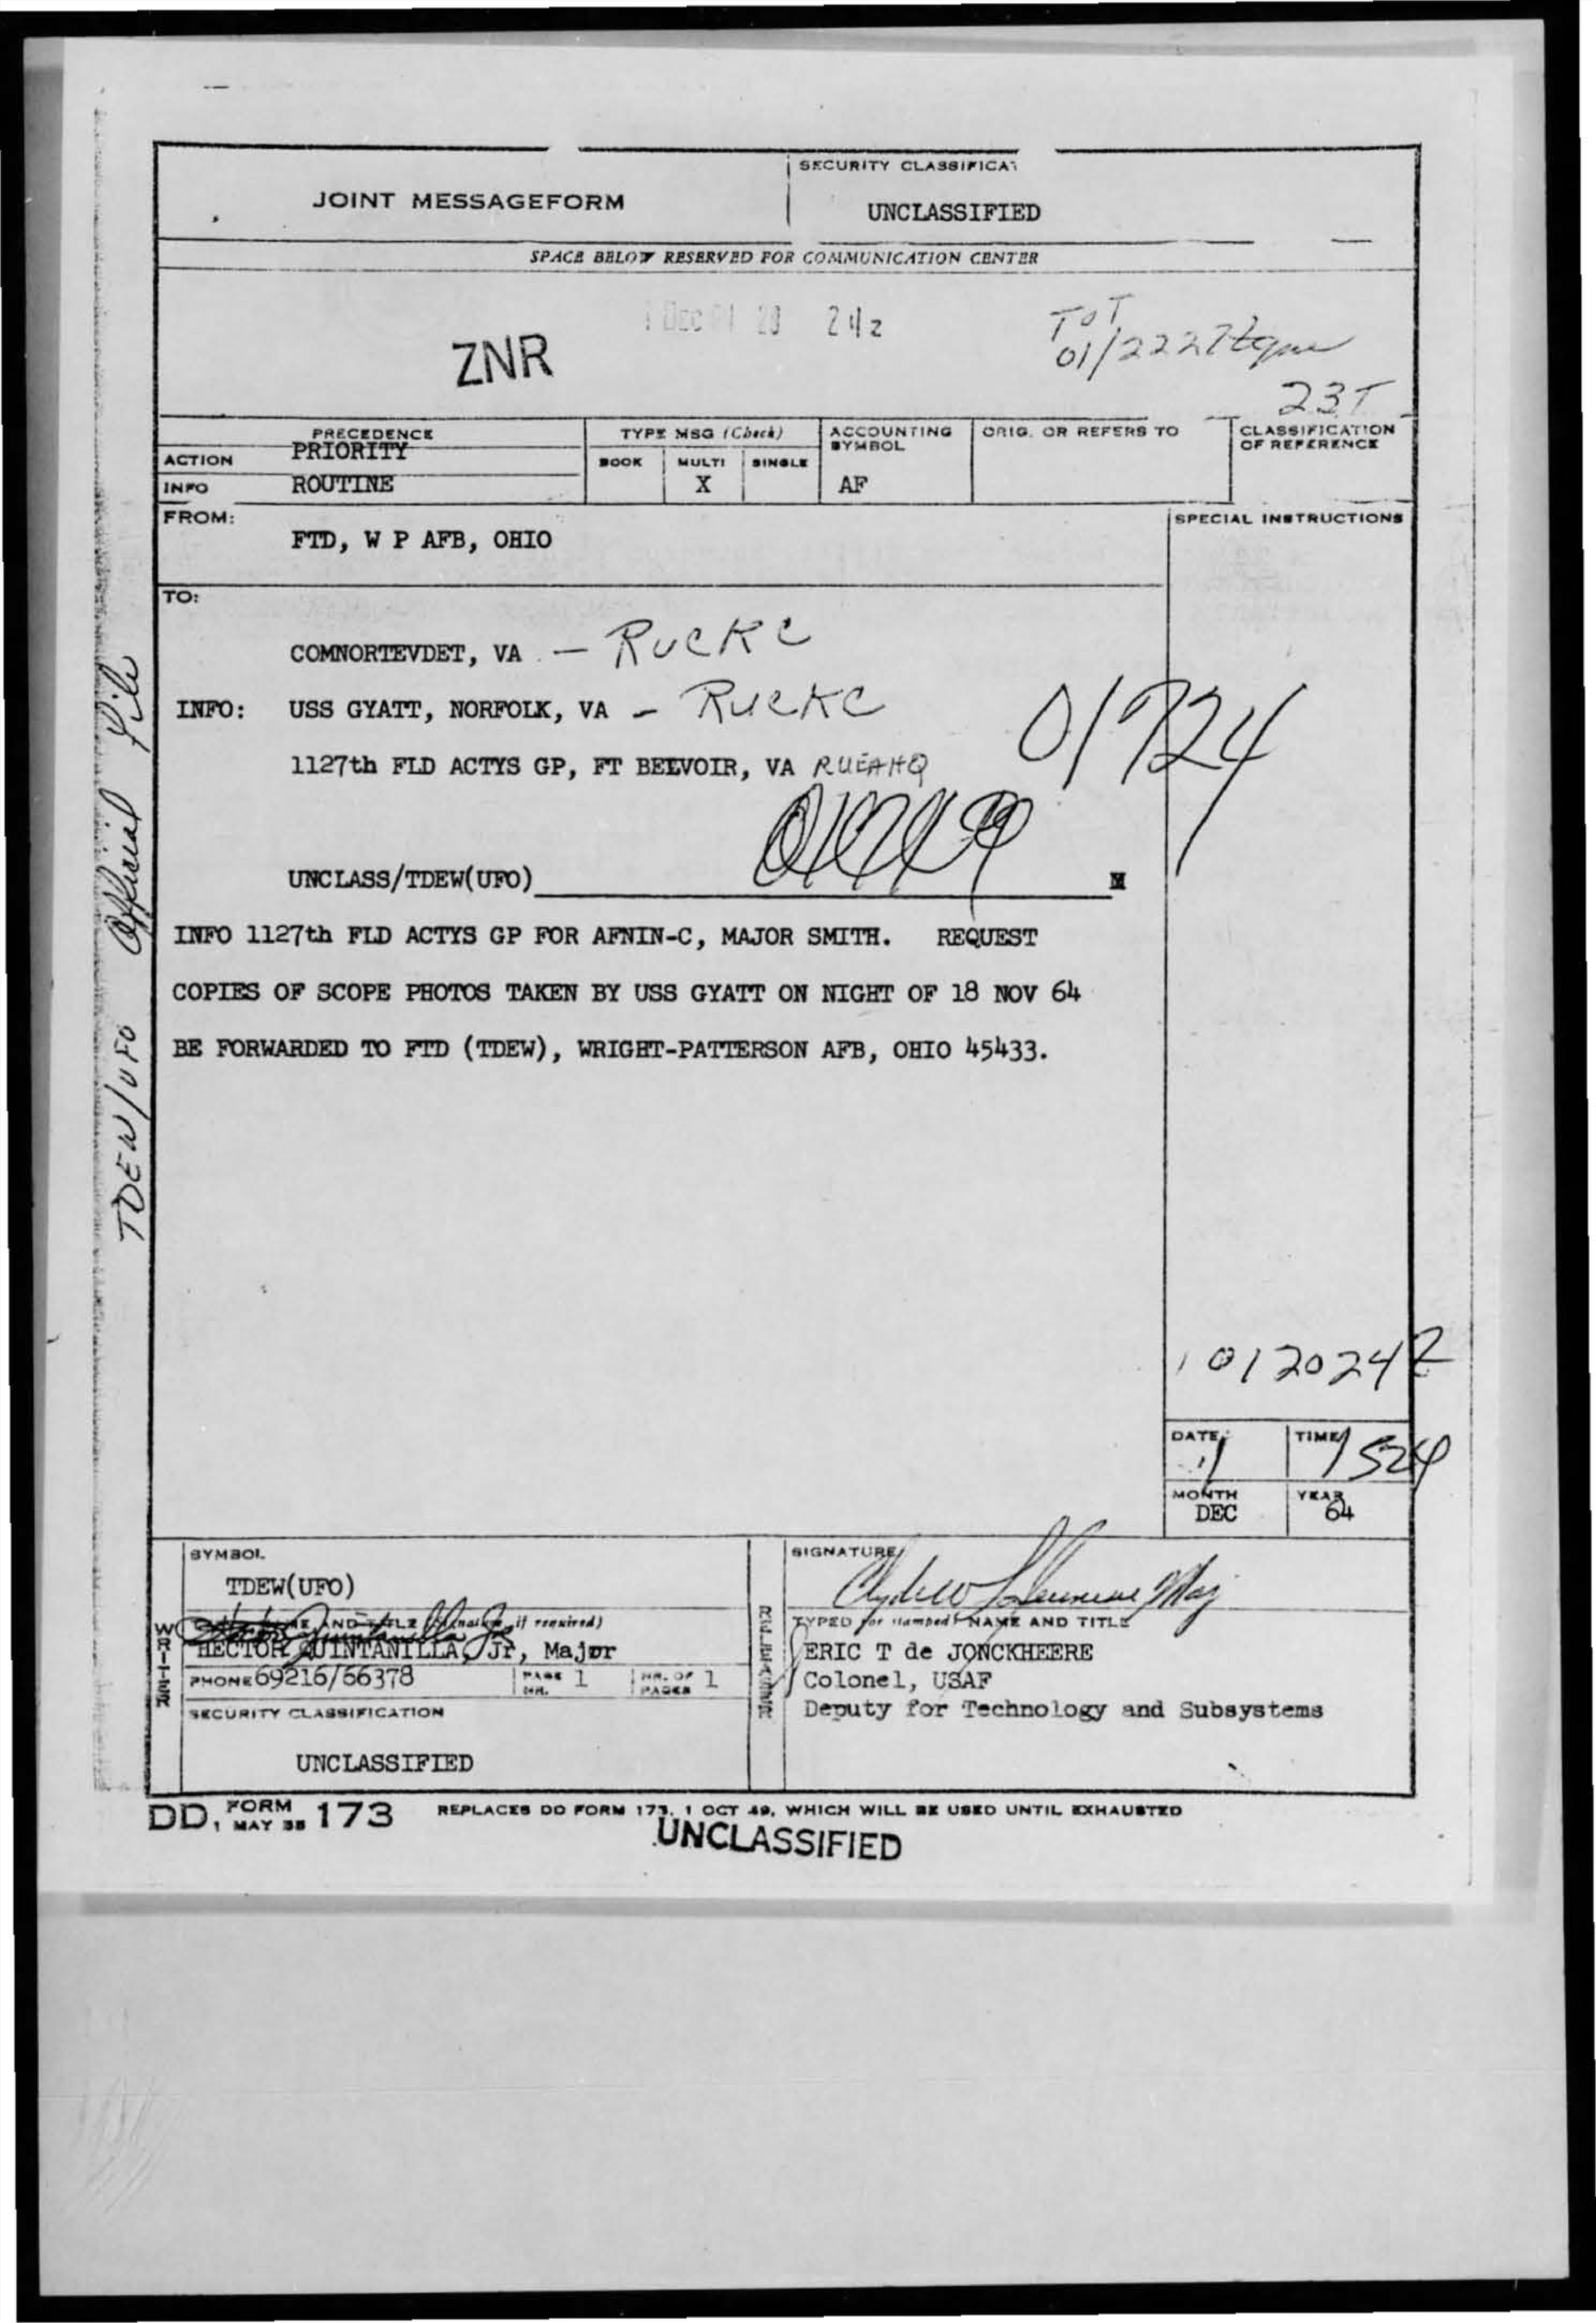 JOINT MESSAGEFORM
SECURITY CLASSIFICAT
UNCLASSIFIED
SPACE BELOW RESERVED FOR COMMUNICATION CENTER
1 DEC 20 24z
ZNR
TOT
01/2227z
23T
PRECEDENCE
TYPE MSG (Check)
ACCOUNTING SYMBOL
ORIG. OR REFERS TO
CLASSIFICATION OF REFERENCE
ACTION PRIORITY
BOOK MULTI SINGLE
INFO ROUTINE
X
AF
FROM:
SPECIAL INSTRUCTIONS
FTD, W P AFB, OHIO
TO:
COMNORTEVDET, VA — RUCKC
INFO: USS GYATT, NORFOLK, VA — RUCKC
1127th FLD ACTYS GP, FT BELVOIR, VA RUEAHQ
01724
UNCLASS/TDEW(UFO)
INFO 1127th FLD ACTYS GP FOR AFNIN-C, MAJOR SMITH. REQUEST
COPIES OF SCOPE PHOTOS TAKEN BY USS GYATT ON NIGHT OF 18 NOV 64
BE FORWARDED TO FTD (TDEW), WRIGHT-PATTERSON AFB, OHIO 45433.
TDEW/UFO Official File
012024Z
DATE 1
TIME 1524
MONTH DEC
YEAR 64
SYMBOL
TDEW(UFO)
WRITER
HECTOR QUINTANILLA, Jr, Major
PHONE 69216/66378
PAGE NR. 1
NR. OF PAGES 1
SECURITY CLASSIFICATION
UNCLASSIFIED
RELEASER
SIGNATURE
TYPED (or stamped) NAME AND TITLE
ERIC T de JONCKHEERE
Colonel, USAF
Deputy for Technology and Subsystems
DD, FORM 173
MAY 55
REPLACES DD FORM 173, 1 OCT 49, WHICH WILL BE USED UNTIL EXHAUSTED
UNCLASSIFIED